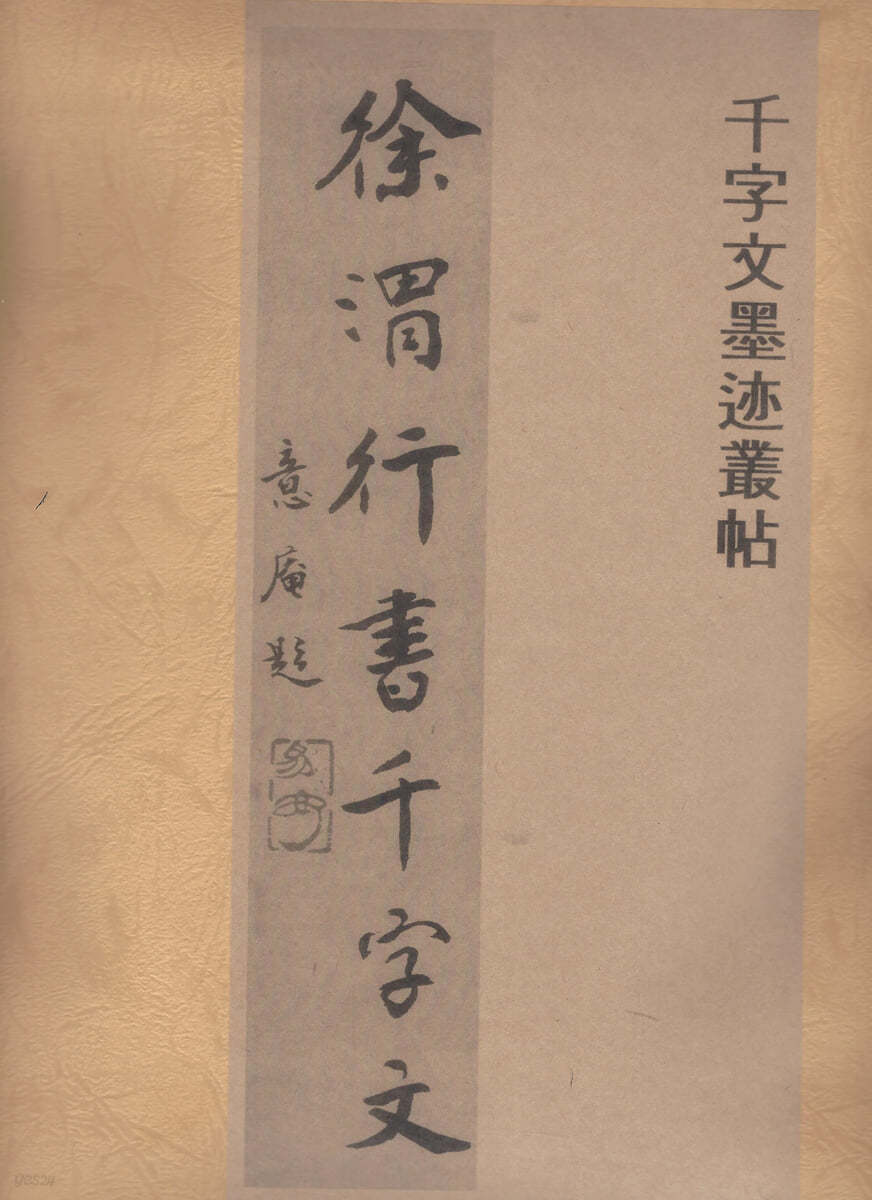 千字文墨迹叢帖
徐渭行書千字文
意庵題
yes24